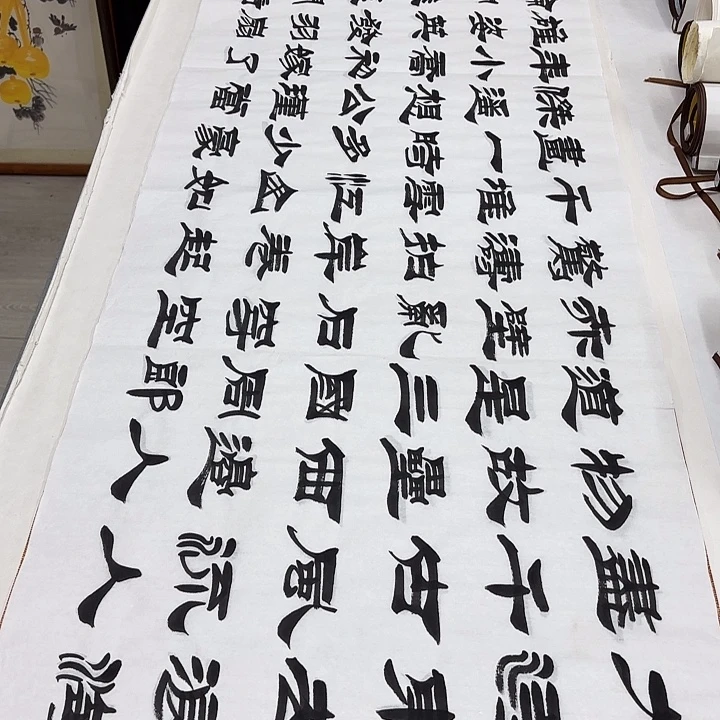 大江東去浪淘
盡千古風流人
物故壘西邊人
道是三國周郎
赤壁亂石穿空
驚濤拍岸卷起
千堆雪江山如
畫一時多少豪
傑遙想公瑾當
年小喬初嫁了
雄姿英發羽扇